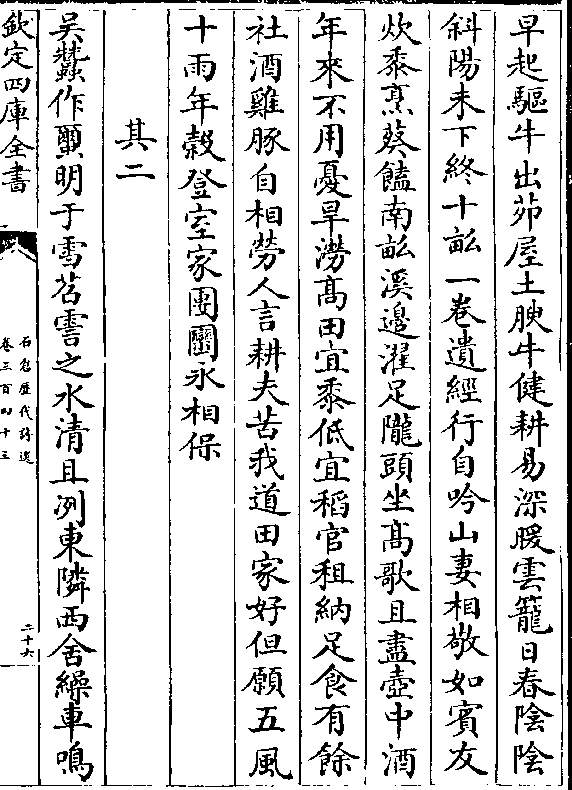 早起驅牛出茆屋土腴牛健耕易深暖雲籠日春陰陰
斜陽未下終十畝一卷遺經行自吟山妻相敬如賓友
炊黍烹葵饁南畝溪邊濯足隴頭坐高歌且盡壺中酒
年來不用憂旱澇高田宜黍低宜稻官租納足食有餘
社酒雞豚自相勞人言耕夫苦我道田家好但願五風
十雨年穀登室家團圞永相保
其二
吳蠶作繭明于雪苕霅之水清且冽東隣西舍繰車鳴
欽定四庫全書
石倉歷代詩選
卷三百四十三
二十六